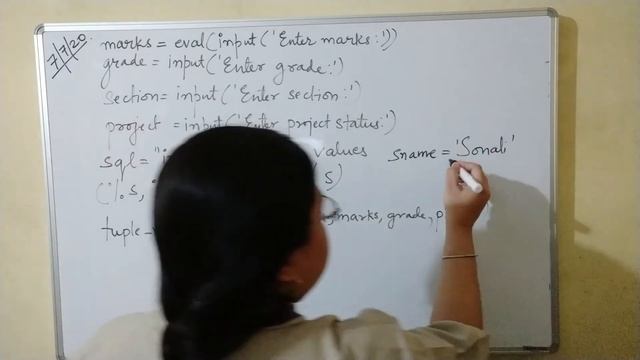 7/7/20
marks = eval(input('Enter marks:'))
grade = input('Enter grade:')
section = input('Enter section:')
project = input('Enter project status:')
sql = "i values
(%s, s)
tuple marks, grade, p
sname = 'Sonali'